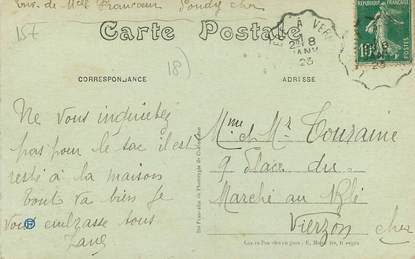 157
Carte Postale
18)
CORRESPONDANCE
ADRESSE
A VIER
28
JANV
23
RÉPUBLIQUE FRANÇAISE
10
Ne vous inquiétez
pas pour le sac il est
resté à la maison
tout va bien je
vous embrasse tous
Mme et Mr Touraine
9 Place du
Marché au Blé
Vierzon Cher